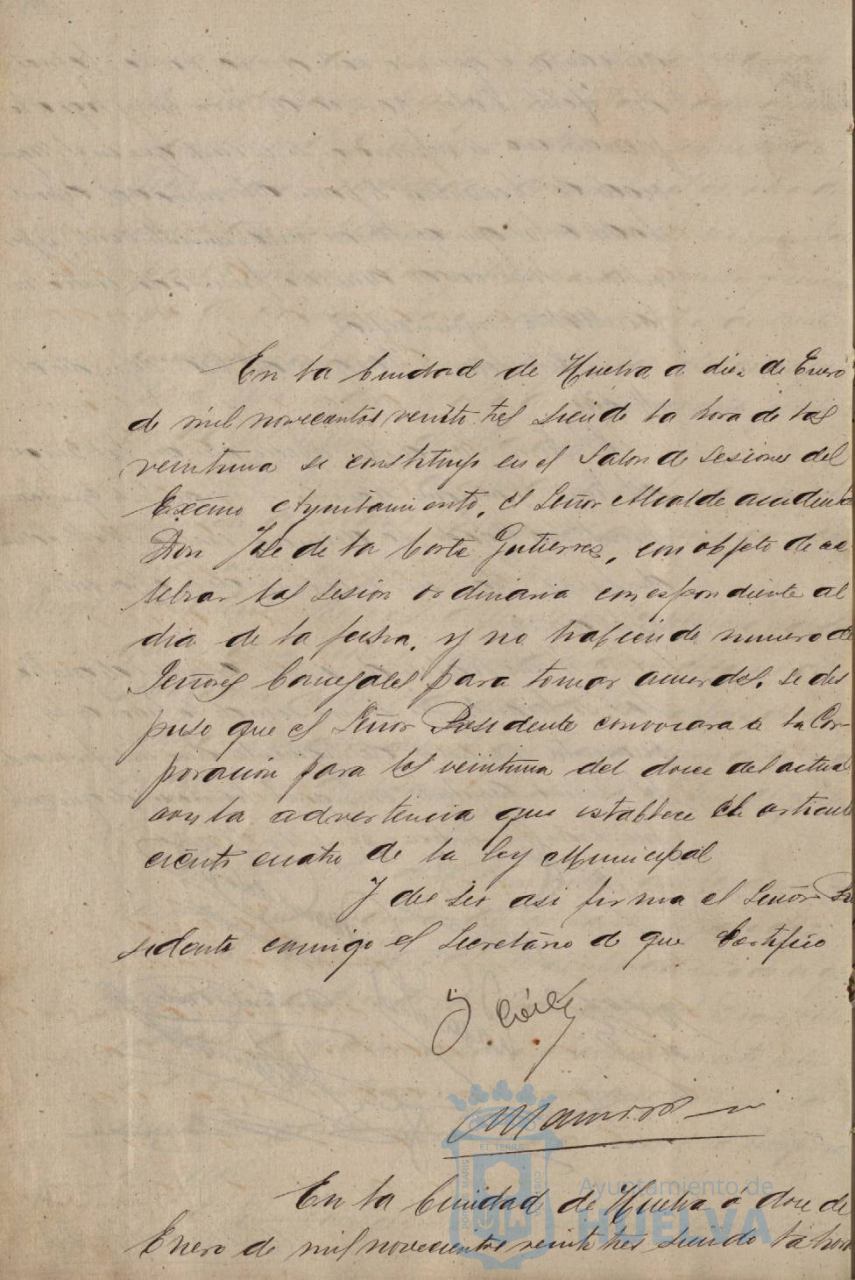 En la Ciudad de Huelva a diez de Enero
de mil novecientos veinte tres siendo la hora de las
veintiuna se constituyó en el Salon de Sesiones del
Excmo Ayuntamiento, el Señor Alcalde accidental
Don José de la Corte Gutierrez, con objeto de ce
lebrar la sesión ordinaria correspondiente al
dia de la fecha, y no habiendo numero de
Señores Concejales para tomar acuerdos, se dis
puso que el Señor Presidente convocara a la Cor-
poración para las veintiuna del doce del actual
con la advertencia que establece el articulo
ciento cuatro de la ley Municipal
Y de ser asi firma el Señor Pre
sidente conmigo el Secretario de que Certifico
En la Ciudad de Huelva a doce de
Enero de mil novecientos veinte tres siendo la hora
Ayuntamiento de
HUELVA